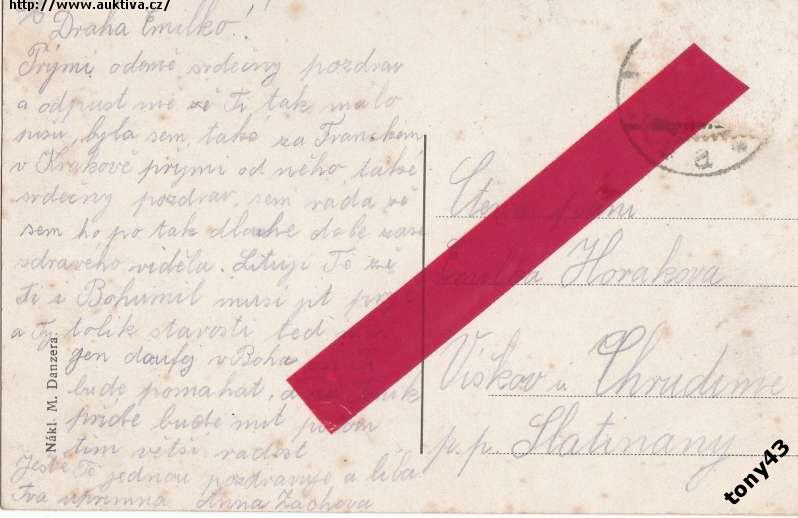 http://www.auktiva.cz/
Draha Emilko!
Prýmy odemě srdečny pozdrav
a odpust mě že Ti tak malo
pisu, byla sem také za Franckem
v Krakově prýmy od něho také
srdečny pozdrav, sem rada že
sem ho po tak dlouhe dobe zase
zdraveho viděla. Lituji Tě že
Ti i Bohumil musi jt
a Ty tolik starosti ted
gen doufej v Boha
bude pomahat, a
pride budeš mit
tim větši radost
Ještě Tě jednou pozdravuje a líba
Tva uprimna Anna Zachova
Nákl. M. Danzera.
Ctena
Emilka Horakova
Viškov u Chrudime
p.p. Slatinany
tony43